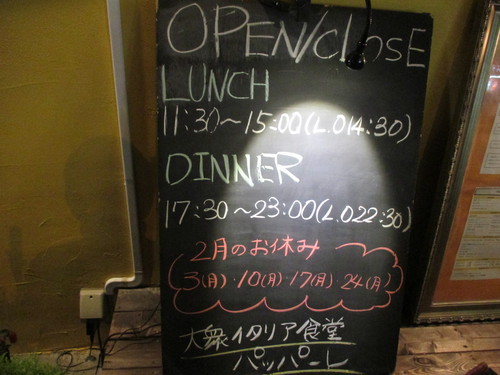 OPEN/CLOSE
LUNCH
11:30〜15:00(L.O14:30)
DINNER
17:30〜23:00(L.O22:30)
2月のお休み
3(月)・10(月)・17(月)・24(月)
大衆イタリア食堂
パッパーレ